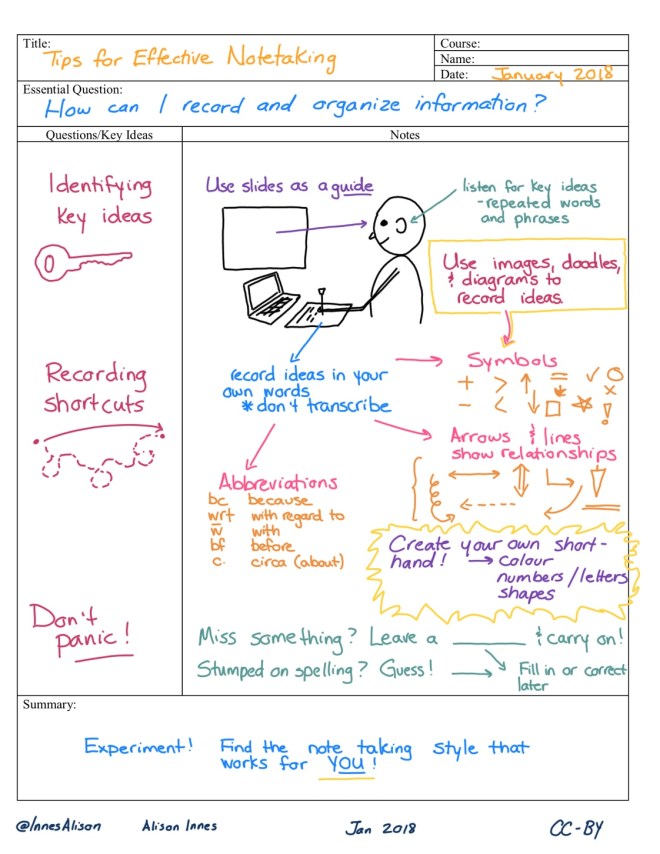 Title:
Tips for Effective Notetaking
Course:
Name:
Date: January 2018
Essential Question:
How can I record and organize information?
Questions/Key Ideas
Notes
Identifying
key ideas
Use slides as a guide
listen for key ideas
- repeated words
and phrases
Use images, doodles,
& diagrams to
record ideas.
Recording
shortcuts
record ideas in your
own words
* don't transcribe
Symbols
+ > ↑ = ✓ ○
- < ↓ □ ☆ × !
Arrows & lines
show relationships
Abbreviations
bc because
wrt with regard to
w̄ with
bf before
c. circa (about)
Create your own short-
hand! → colour
numbers/letters
shapes
Don't
panic!
Miss something? Leave a ______ & carry on!
Stumped on spelling? Guess! → Fill in or correct
later
Summary:
Experiment! Find the note taking style that
works for YOU!
@InnesAlison Alison Innes Jan 2018 CC-BY